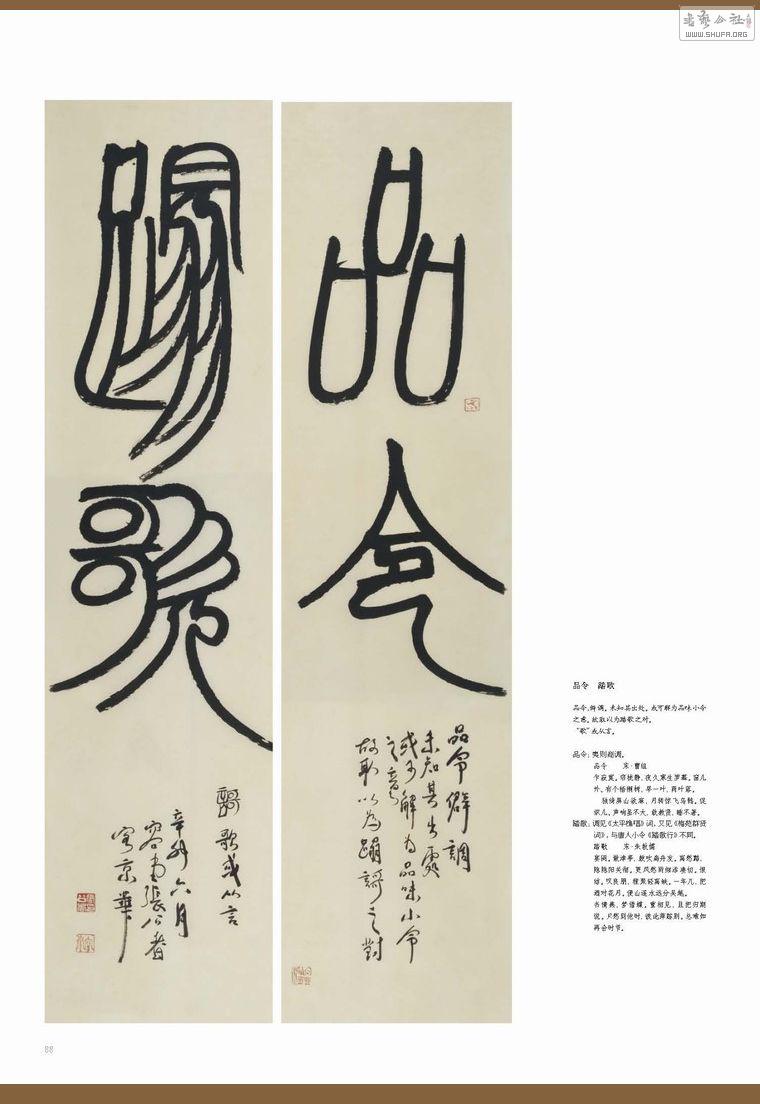 书艺公社
WWW.SHUFA.ORG
品令
蹋歌
品令僻调
未知其出处
或可解为品味小令
之意
故取以为蹋謌之對
歌或从言
辛卯六月
京華
品令 踏歌
品令,僻调。未知其出处。或可解为品味小令
之意。故取以为踏歌之对。
“歌”或从言。
品令：夷则商调。
品令 宋·曹组
乍寂寞。帘栊静、夜久寒生罗幕。窗儿
外、有个梧桐树、早一叶、两叶落。
独倚屏山欲寐，月转惊飞乌鹊。促
织儿、声响虽不大，敢教贤、睡不著。
踏歌：调见《太平樵唱》词，又见《梅苑群贤
词》，与唐人小令《踏歌行》不同。
踏歌 宋·朱敦儒
宴阕。散津亭、鼓吹扁舟发。离愁黯、
隐隐阳关彻。更风愁雨细添凄切。恨
结。叹良朋、雅聚轻离缺。一年几、把
酒对花月。便山遥水远分吴越。
书倩燕、梦借蝶。重相见、且把归期
说。只愁到他时，彼此萍踪别。总难如
再会时节。
88